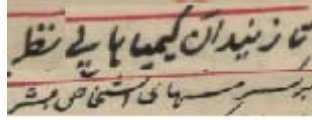 تا زیندان کیمیا های نظر
بر سر مسهای اشخاص بشر